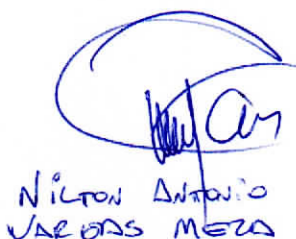 NILTON ANTONIO
VARGAS MEZA